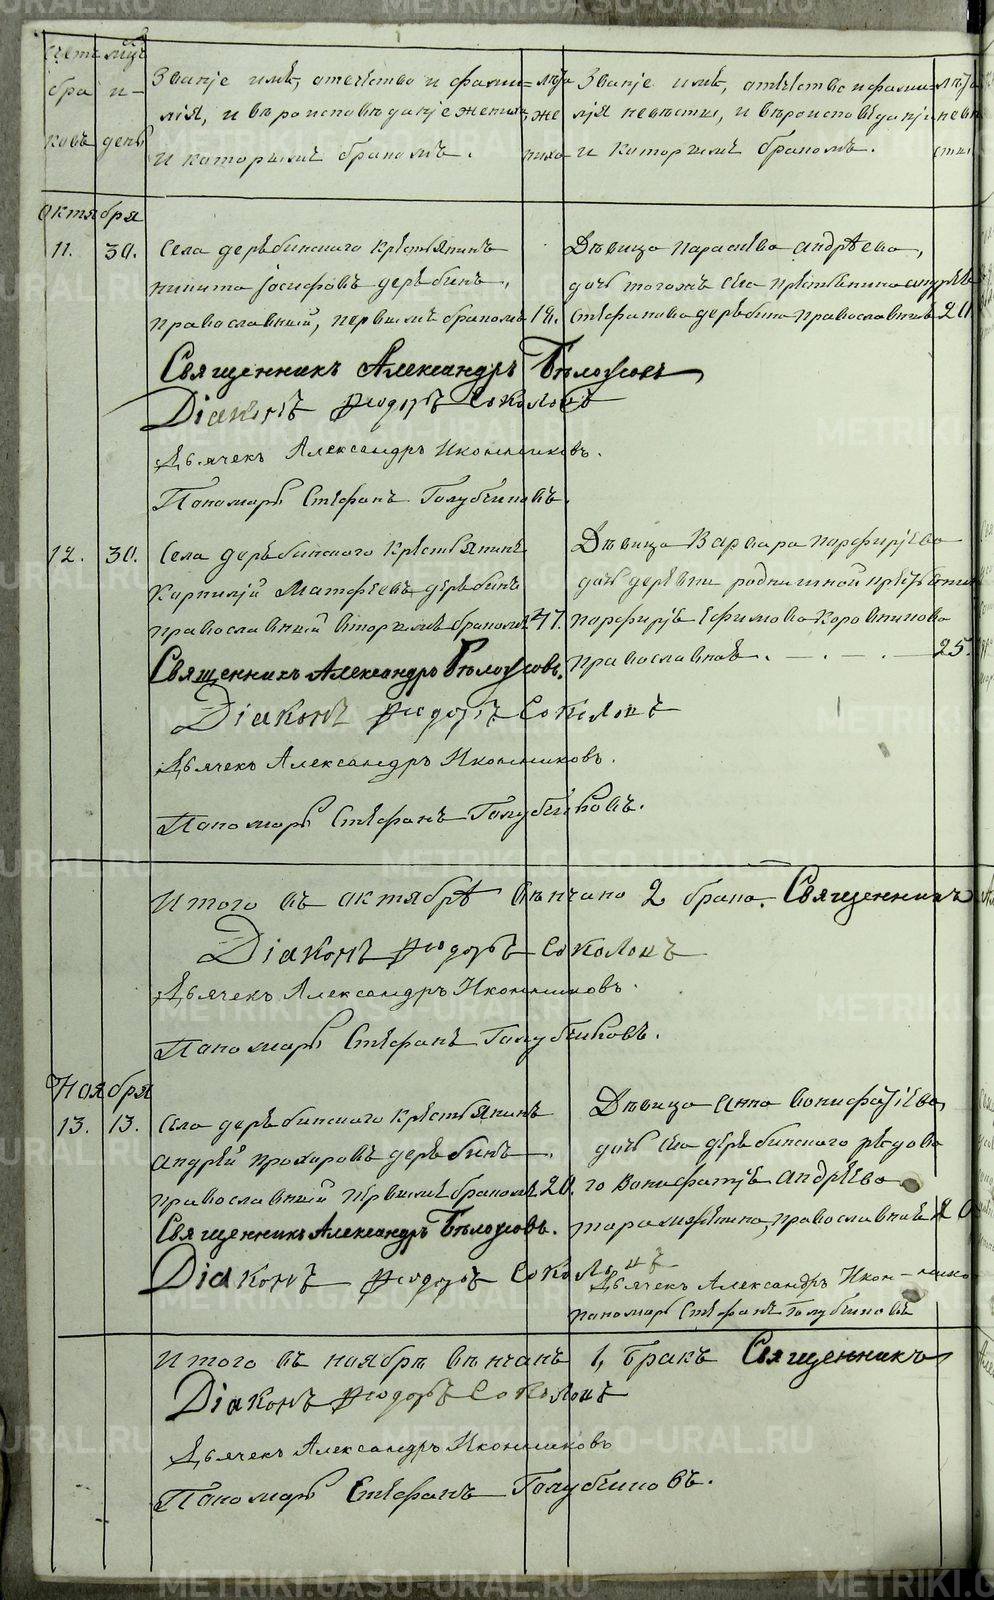 Счетъ мѣцъ
бра и
ковъ день
Званіе имѣ, отечество и фами=
лія, и вѣроисповѣданіе жениха,
и которымъ бракомъ.
лѣта
же
ниха
Званіе имѣ, отечество и фами=
лія невѣсты, и вѣроисповѣданіе
и которымъ бракомъ.
лѣта
невѣ
сты
Октября
11. 30. Села дерябинскаго крестьянинъ
никита Іосифовъ дерябинъ,
православный, первымъ бракомъ 19.
Дѣвица параскева андрѣева,
дочь тогожъ села крестьянина андрѣя
Стефанова дерябина православная 20
Священникъ Александръ Бѣлоусовъ
Діаконъ Ѳеодоръ Соколовъ
Дьячекъ Александръ Иконниковъ.
Пономарь Стефанъ Голубчиковъ.
12. 30. Села дерябинскаго Крестьянинъ
Корнилій Матфеевъ дерябинъ
православный вторымъ бракомъ 47.
Дѣвица Варвара порфирьева
дочь деревни родничной крестьянина
порфирія Ефимова Коровникова
православная. 25.
Священникъ Александръ Бѣлоусовъ.
Діаконъ Ѳеодоръ Соколовъ
Дьячекъ Александръ Иконниковъ.
Пономарь Стефанъ Голубчиковъ.
Итого въ октябрѣ вѣнчано 2 брака. Священникъ
Діаконъ Ѳеодоръ Соколовъ
Дьячекъ Александръ Иконниковъ.
Пономарь Стефанъ Голубчиковъ.
Ноября
13. 13. Села дерябинскаго крестьянинъ
андрей прохоровъ дерябинъ.
православный первымъ бракомъ 20.
Дѣвица Анна вонифатіева,
дочь села дерябинскаго рядова
го вонифатія андрѣева
православная 20
Священникъ Александръ Бѣлоусовъ.
Діаконъ Ѳеодоръ Соколовъ
Дьячекъ Александръ Икон-нико
пономарь Стефанъ Голубчиковъ
Итого въ ноябрѣ вѣнчанъ 1, бракъ Священникъ
Діаконъ Ѳеодоръ Соколовъ
Дьячекъ Александръ Иконниковъ
Пономарь Стефанъ Голубчиковъ.
METRIKI.GASO-URAL.RU